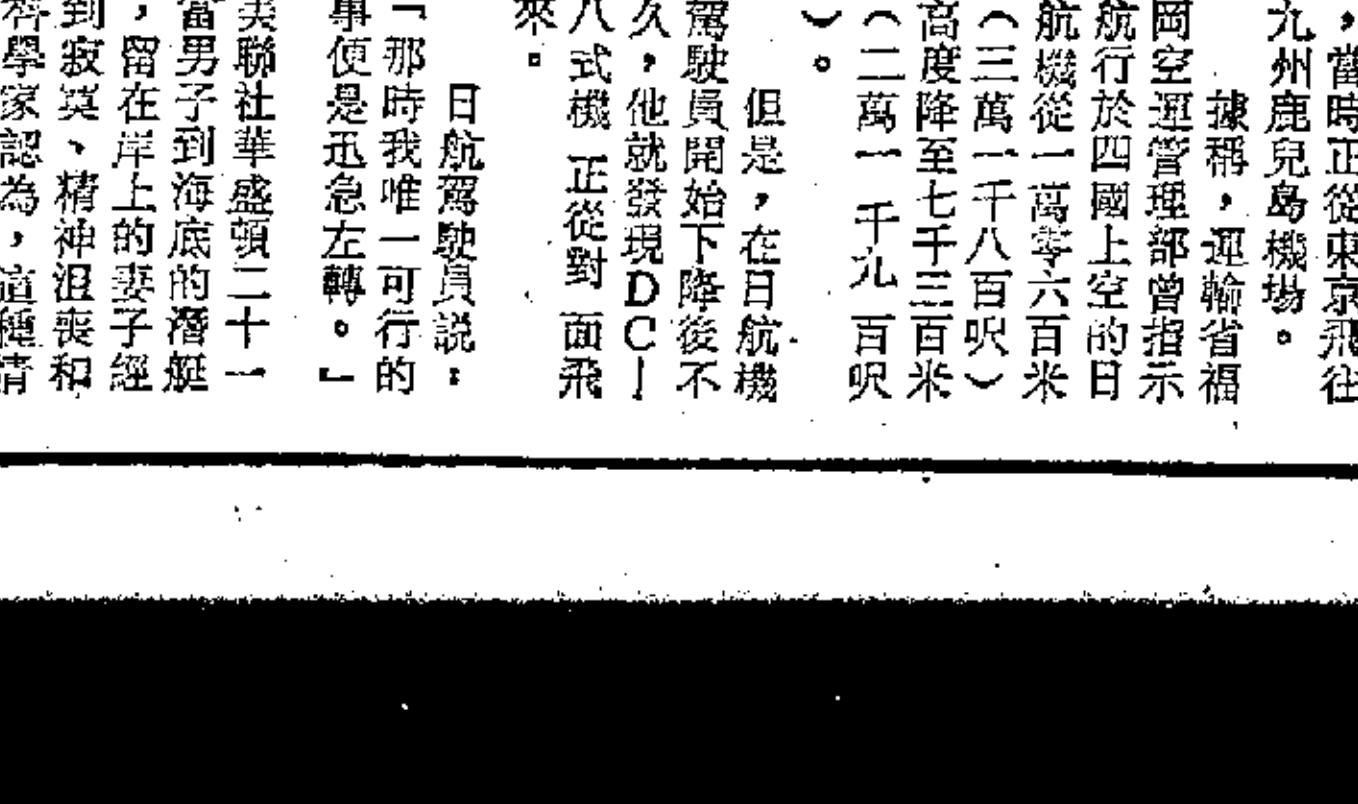 ，當時正從東京飛往
九州鹿兒島機場。
據稱，運輸省福
岡空運管理部曾指示
航行於四國上空的日
航機從一萬零六百米
（三萬一千八百呎）
高度降至七千三百米
（二萬一千九百呎
）。
但是，在日航機
駕駛員開始下降後不
久，他就發現DC—
八式機正從對面飛
來。
日航駕駛員説：
「那時我唯一可行的
事便是迅急左轉。」
美聯社華盛頓二十一
當男子到海底的潛艇
，留在岸上的妻子經
到寂寞、精神沮喪和
學家認為，這種情